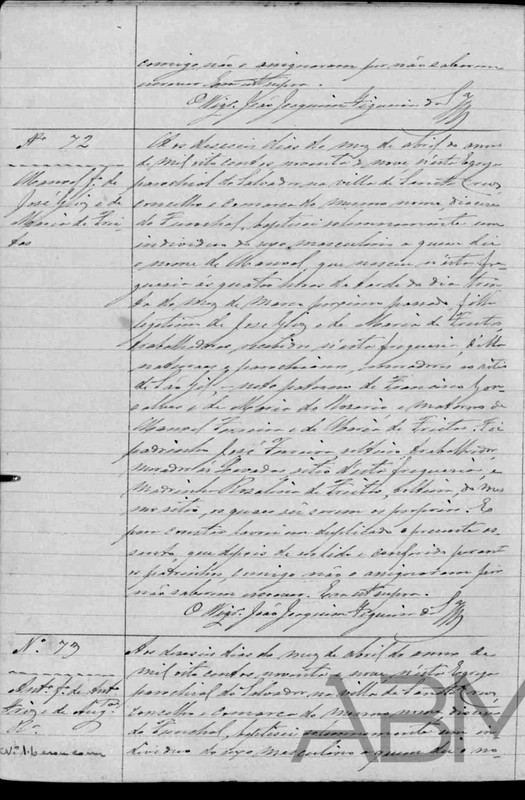 comigo não o assignaram por não saberem
escrever. Era ut supra.
O Vigº. João Joaquim Figueira de
Nº 72
Manoel, fº de
José Glz e de
Maria de Frei-
tas
Aos deseseis dias do mez de abril do anno
de mil oito centos noventa e nove, n'esta Egreja
parochial do Salvador, na villa de Santa Cruz,
concelho e comarca do mesmo nome, diocese
do Funchal, baptisei solemnemente um
individuo do sexo masculino a quem dei
o nome de Manoel, que nasceu n'esta fre-
guesia ás quatro horas da tarde do dia trin-
ta do mez de março proximo passado, filho
legitimo de José Glz e de Maria de Freitas
trabalhadores, recebidos n'esta freguesia,
naturaes, parochianos, moradores no sitio
de, neto paterno de Francisco Gon-
salves e de Maria do Rosario e materno de
Manoel e de Maria de Freitas. Foi
padrinho José, solteiro, trabalhador
morador sitio d'esta freguesia, e
madrinha de Freitas, solteira, do mes-
mo sitio, os quaes sei serem os proprios. E
para constar lavrei em duplicado o presente as-
sento, que depois de ser lido e conferido perante
os padrinhos, comigo não o assignaram por
não saberem escrever. Era ut supra.
O Vigº. João Joaquim Figueira de
Nº 73
Antº, fº de Antº
Aos deseseis dias do mez de abril do anno de
mil oito centos noventa e nove, n'esta Egreja
parochial do Salvador, na villa de Santa Cruz,
concelho e comarca do mesmo nome, diocese
do Funchal, baptisei solemnemente um in-
dividuo do sexo masculino a quem dei o no-
ABM